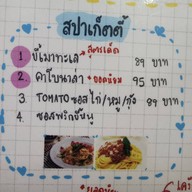 สปาเก็ตตี้
1 ขี้เมาทะเล *สูตรเด็ด 89 บาท
2 คาโบนาล่า *ยอดนิยม 95 บาท
3 TOMATO ซอสไก่/หมู/กุ้ง 89 บาท
4. ซอสพริกขี้หนู